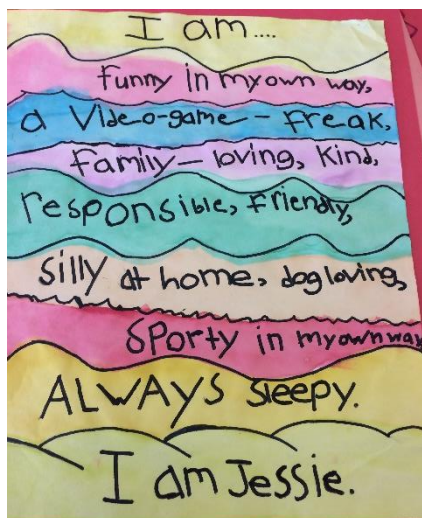 I am....
funny in my own way,
a Video-game-freak,
family-loving, kind,
responsible, friendly,
silly at home, dog loving,
sporty in my own way
ALWAYS sleepy.
I am Jessie.